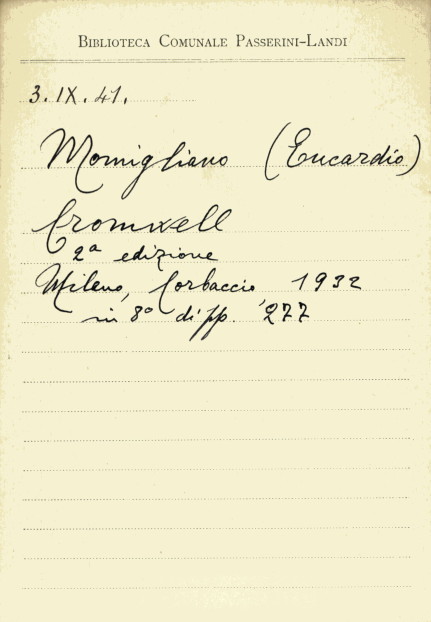 BIBLIOTECA COMUNALE PASSERINI-LANDI
3.IX.41.
Momigliano (Eucardio)
Cromwell
2ª edizione
Milano, Corbaccio 1932
in 8° di pp. 277